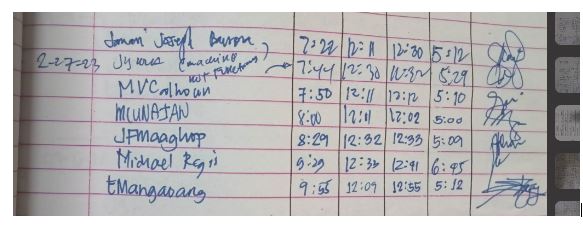 Joseph Buron 7:22 12:11 12:30 5:12
2-27-23 (machine not functional) 7:44 12:30 12:32 5:29
MVCalhoun 7:50 12:11 12:12 5:10
MCUNATAN 8:00 12:11 12:02 5:00
JFMaaghop 8:29 12:32 12:33 5:09
Michael Regis 9:29 12:33 12:41 6:45
tMangaoang 9:55 12:09 12:55 5:12